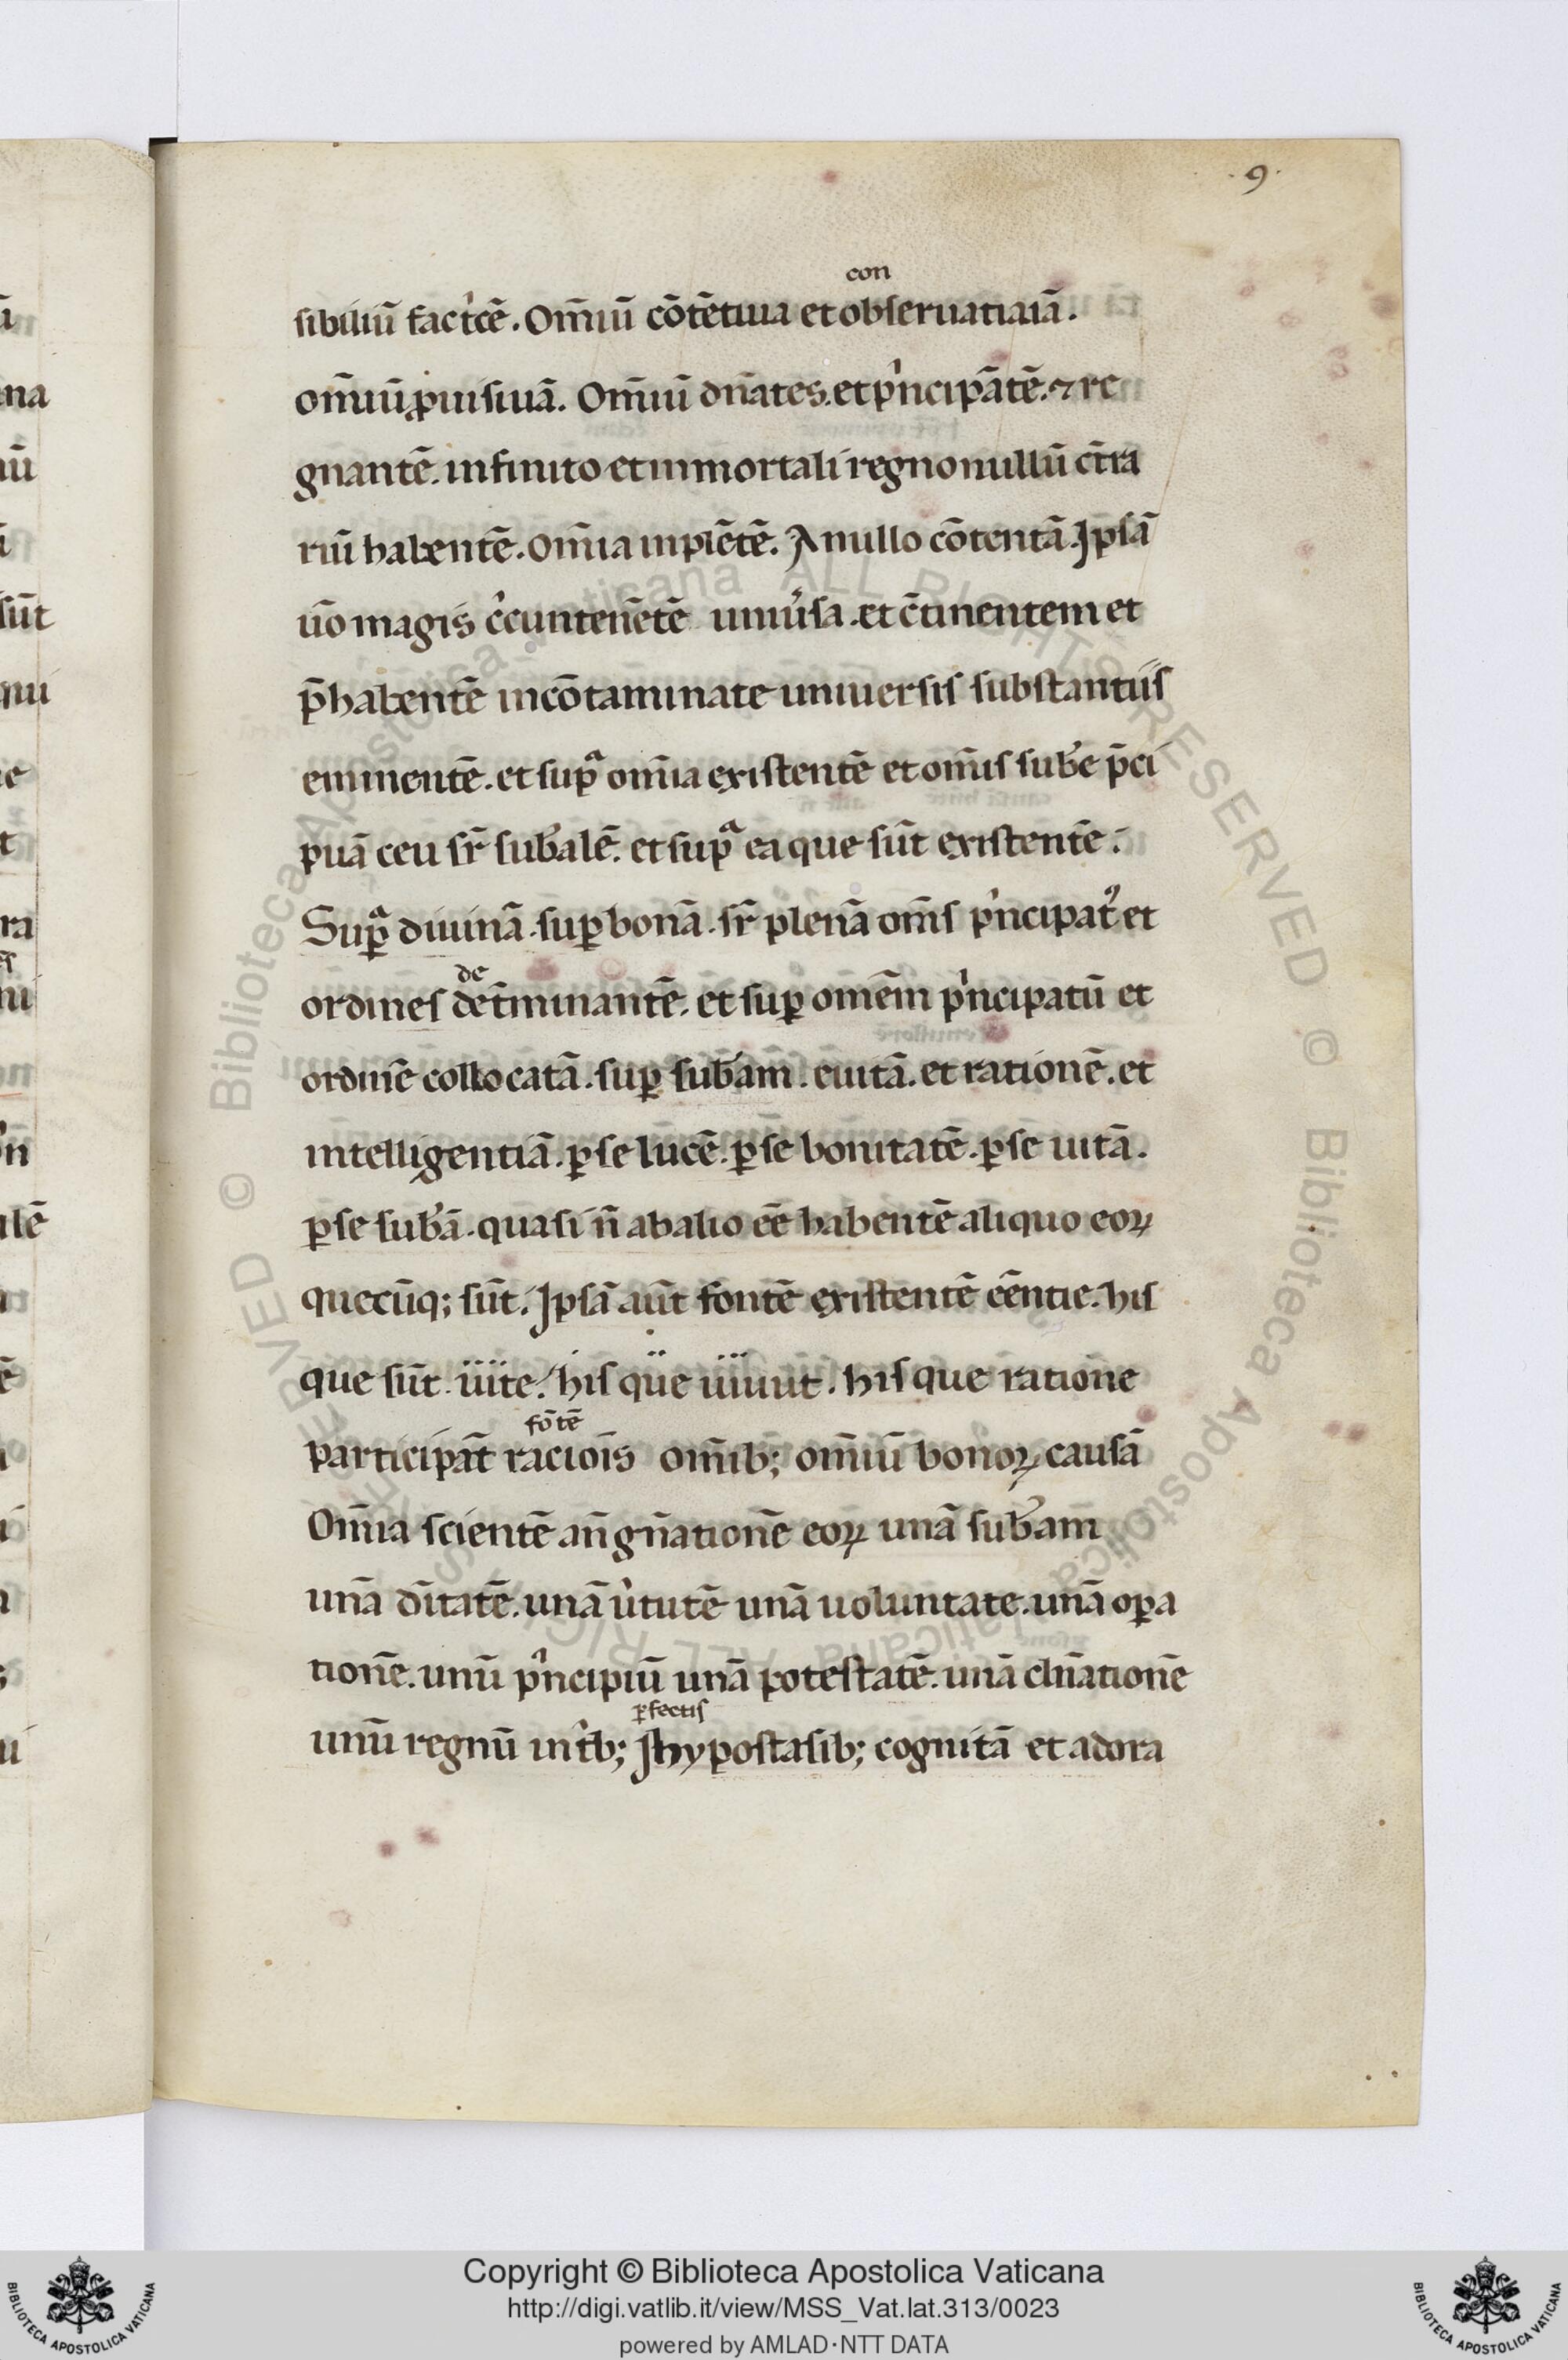 9
con
sibiliū fact͛cē. Om̄iū cōtētiua et obseruatiaiā.
om̄iū ꝓuisiuā. Om̄iū dn̄ates. et pͥncipātē. ⁊ re
gnantē. infinito et inmortali regno nullū c̄tra
riū habentē. om̄ia inplētē. A nullo cōtentā. Ipsā
u̅o magis cͥcuntenētē uniu͛sa. et c̄tinentem et
p̄habentē incōtaminate uniuersis substantiis
eminentē. et sup̱ᵃ om̄ia existentē et om̄is sub͛e p̄ci
puā ceu sr̄ sub͛alē. et supᵃ ea que sūt existentē.
Supᵃ diuinā. suꝑ bonā. sr̄ plenā om̄s pͥncipat᾽ et
de
ordines det̄minantē. et suꝑ omēm pͥncipatū et
ordinē collocatā. suꝑ sub͛am. euitā. et rationē. et
intelligentiā. ꝑ se lucē. ꝑ se bonitatē. ꝑ se uitā.
ꝑ se sub͛ā. quasi n̄ ab alio eē habentē aliquo eoꝝ
quecūq; sūt. Ipsā aūt fontē existentē eēntie. his
que sūt. uite. his que uiuūt. his que ratione
fōtē
participāt racioīs om̄ib; om̄iū bonoꝝ causā
Om̄ia scientē an̄ gn̄ationē eoꝝ unā sub͛am
unā dītatē. unā uͥtutē unā uoluntate. unā oꝑa
tionē. unū pͥncipiū unā potestatē. unā dn̄ationē
ꝑfectis
unū regnū in tͥb; Ihypostasib; cognitā et adora
Copyright © Biblioteca Apostolica Vaticana
http://digi.vatlib.it/view/MSS_Vat.lat.313/0023
powered by AMLAD·NTT DATA
BIBLIOTECA APOSTOLICA VATICANA
BIBLIOTECA APOSTOLICA VATICANA